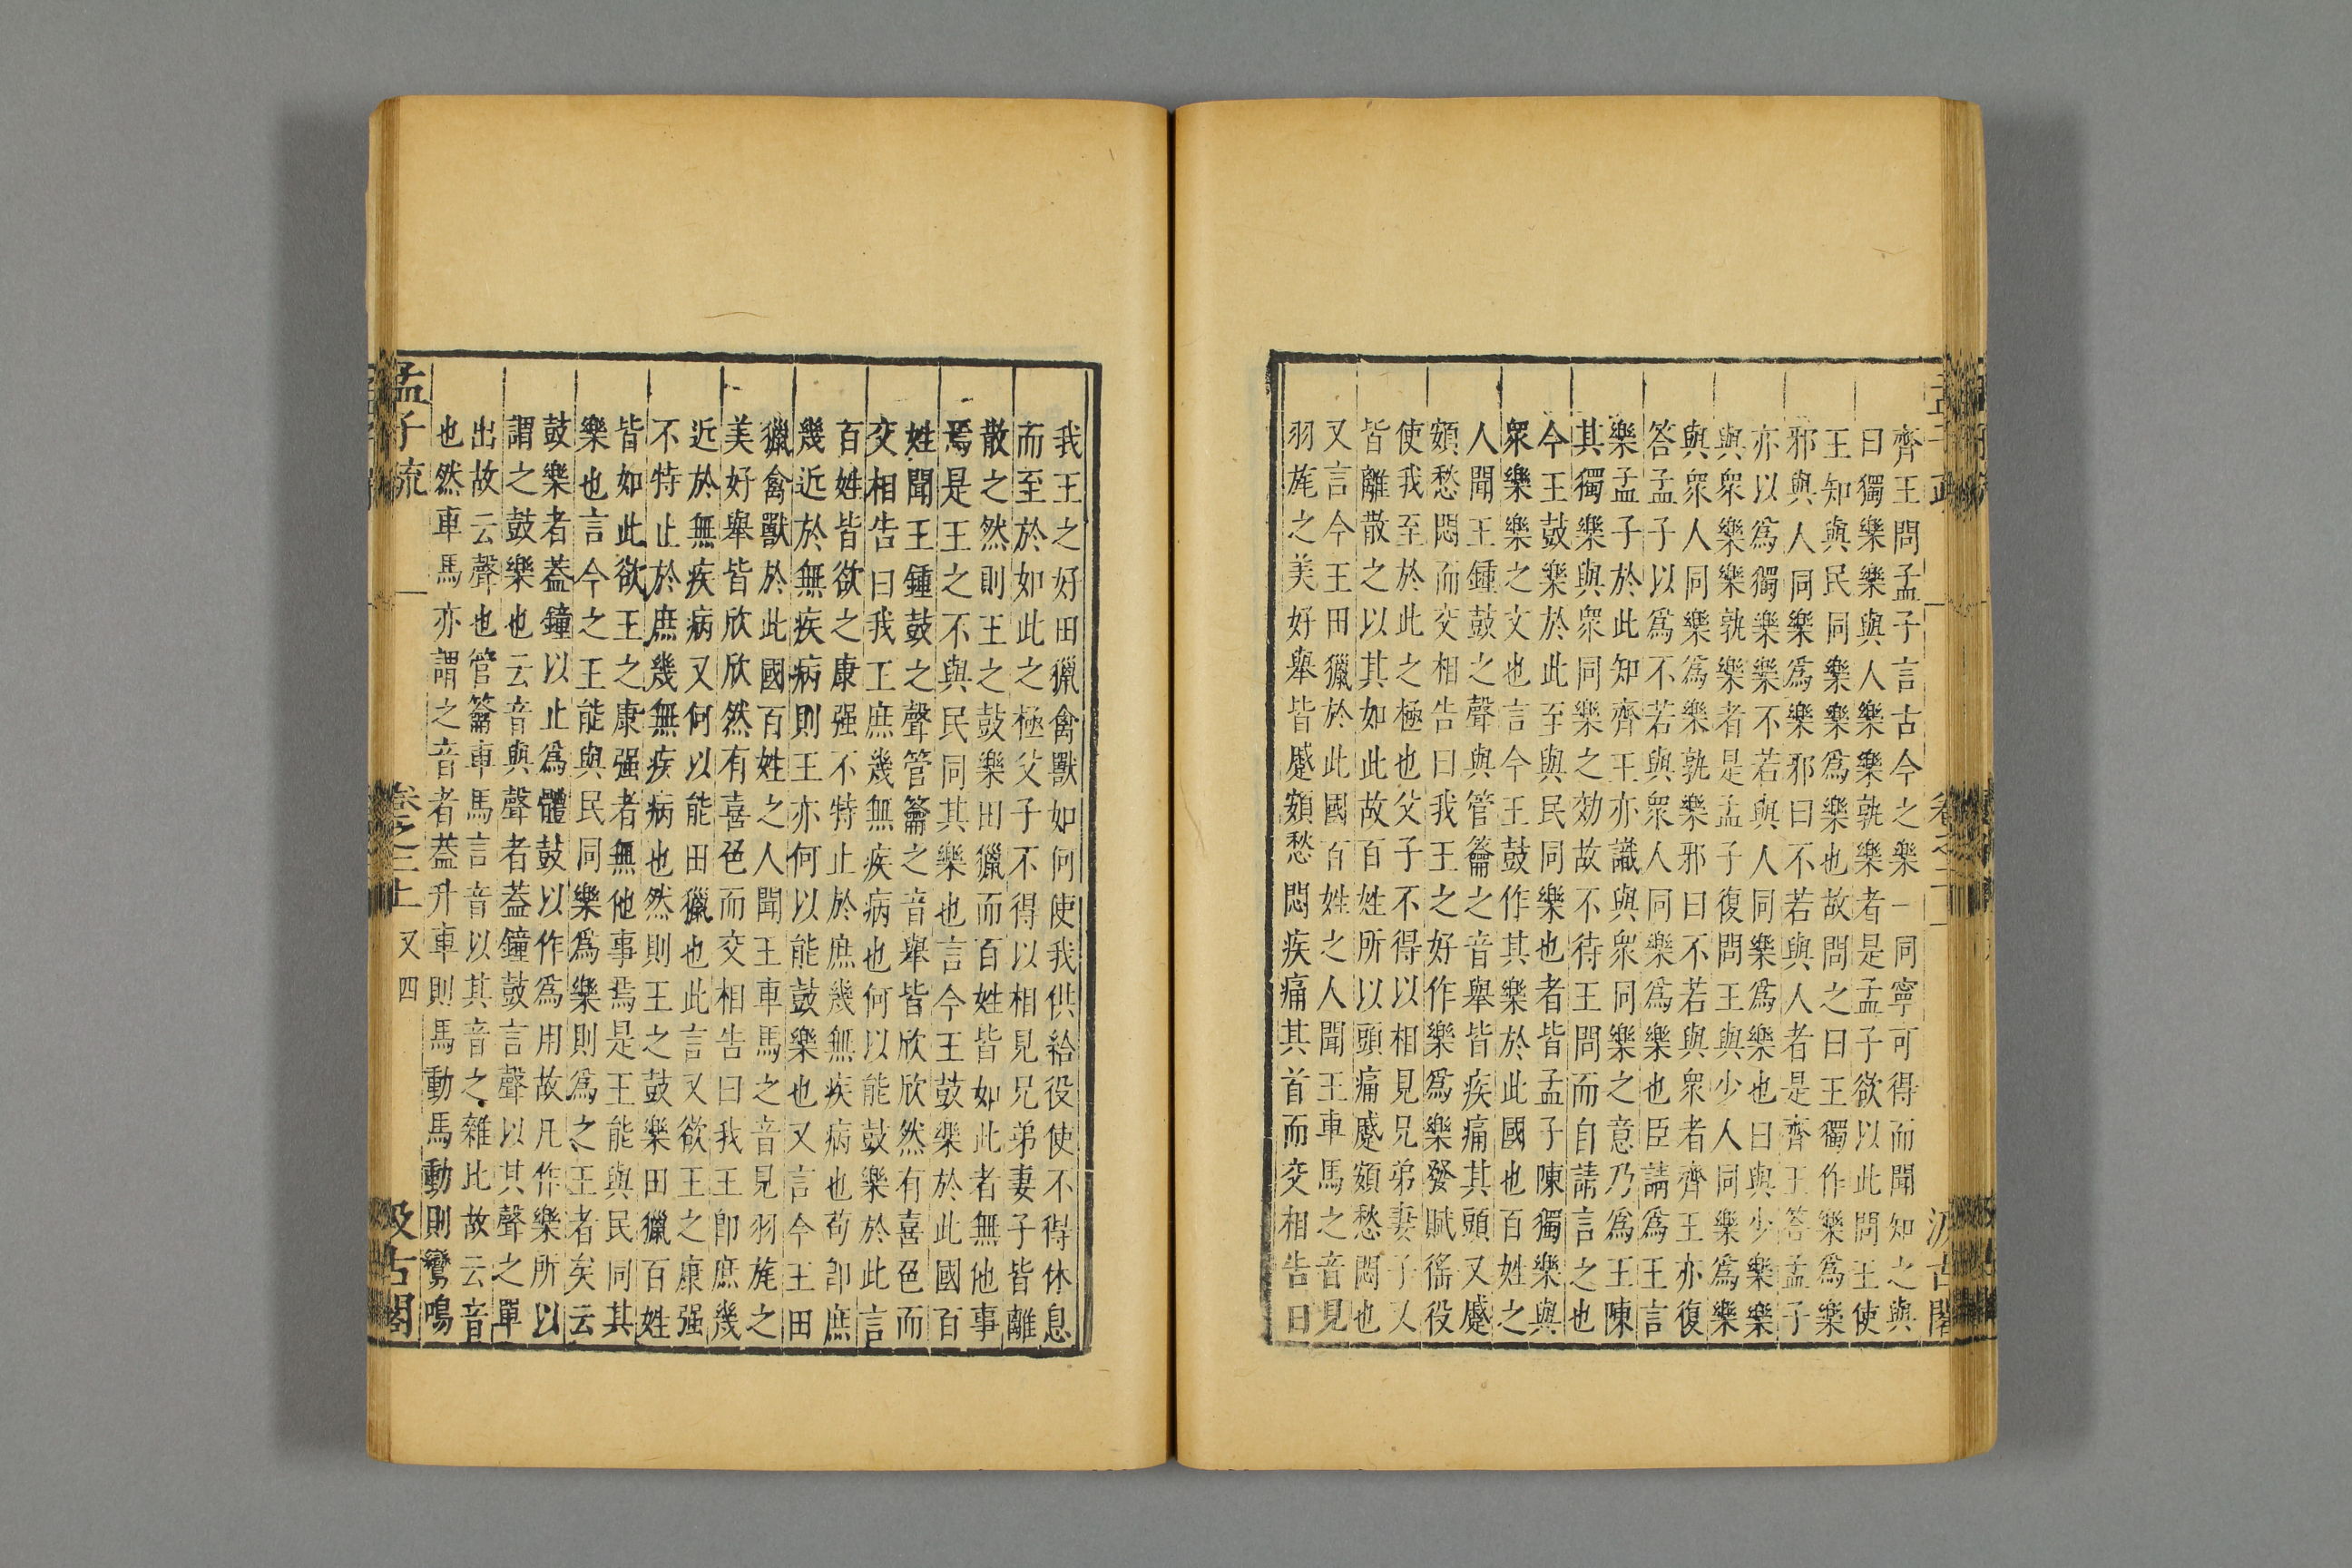 齊王問孟子言古今之樂一同寧可得而聞知之與
曰獨樂樂與人樂樂孰樂者是孟子欲以此問王使
王知與民同樂樂爲樂也故問之曰王獨作樂爲樂
邪與人同樂爲樂邪曰不若與人者是齊王答孟子
亦以爲獨樂樂不若與人同樂爲樂也曰與少樂樂
與衆樂樂孰樂者是孟子復問王與少人同樂爲樂
與衆人同樂爲樂孰樂邪曰不若與衆者齊王亦復
答孟子以爲不若與衆人同樂爲樂也臣請爲王言
樂孟子於此知齊王亦識與衆同樂之意乃爲王陳
其獨樂與衆同樂之効故不待王問而自請言之也
今王鼓樂於此至與民同樂也者皆孟子陳獨樂與
衆樂樂之文也言今王鼓作其樂於此國也百姓之
人聞王鍾鼓之聲與管籥之音舉皆疾痛其頭又蹙
頞愁悶而交相告曰我王之好作樂爲樂發賦徭役
使我至於此之極也父子不得以相見兄弟妻子又
皆離散之以其如此故百姓所以頭痛蹙頞愁悶也
又言今王田獵於此國百姓之人聞王車馬之音見
羽旄之美好舉皆蹙頞愁悶疾痛其首而交相告曰
我王之好田獵禽獸如何使我供給役使不得休息
而至於如此之極父子不得以相見兄弟妻子皆離
散之然則王之鼓樂田獵而百姓皆如此者無他事
焉是王之不與民同其樂也言今王鼓樂於此國百
姓聞王鍾鼓之聲管籥之音舉皆欣欣然有喜色而
交相告曰我王庶幾無疾病也何以能鼓樂於此言
百姓皆欲之康强不特止於庶幾無疾病也苟卽庶
幾近於無疾病則王亦何以能鼓樂也又言今王田
獵禽獸於此國百姓之人聞王車馬之音見羽旄之
美好舉皆欣欣然有喜色而交相告曰我王卽庶幾
近於無疾病又何以能田獵也此言又欲王之康强
不特止於庶幾無疾病也然則王之鼓樂田獵百姓
皆如此欲王之康强者無他事焉是王能與民同其
樂也言今之王能與民同樂爲樂則爲之王者矣云
鼓樂者蓋鐘以止爲體鼓以作爲用故凡作樂所以
謂之鼓樂也云音與聲者蓋鐘鼓言聲以其聲之單
出故云聲也管籥車馬言音以其音之雜比故云音
也然車馬亦謂之音者蓋升車則馬動馬動則鸞鳴
孟子疏
卷之二上
又四
汲古閣